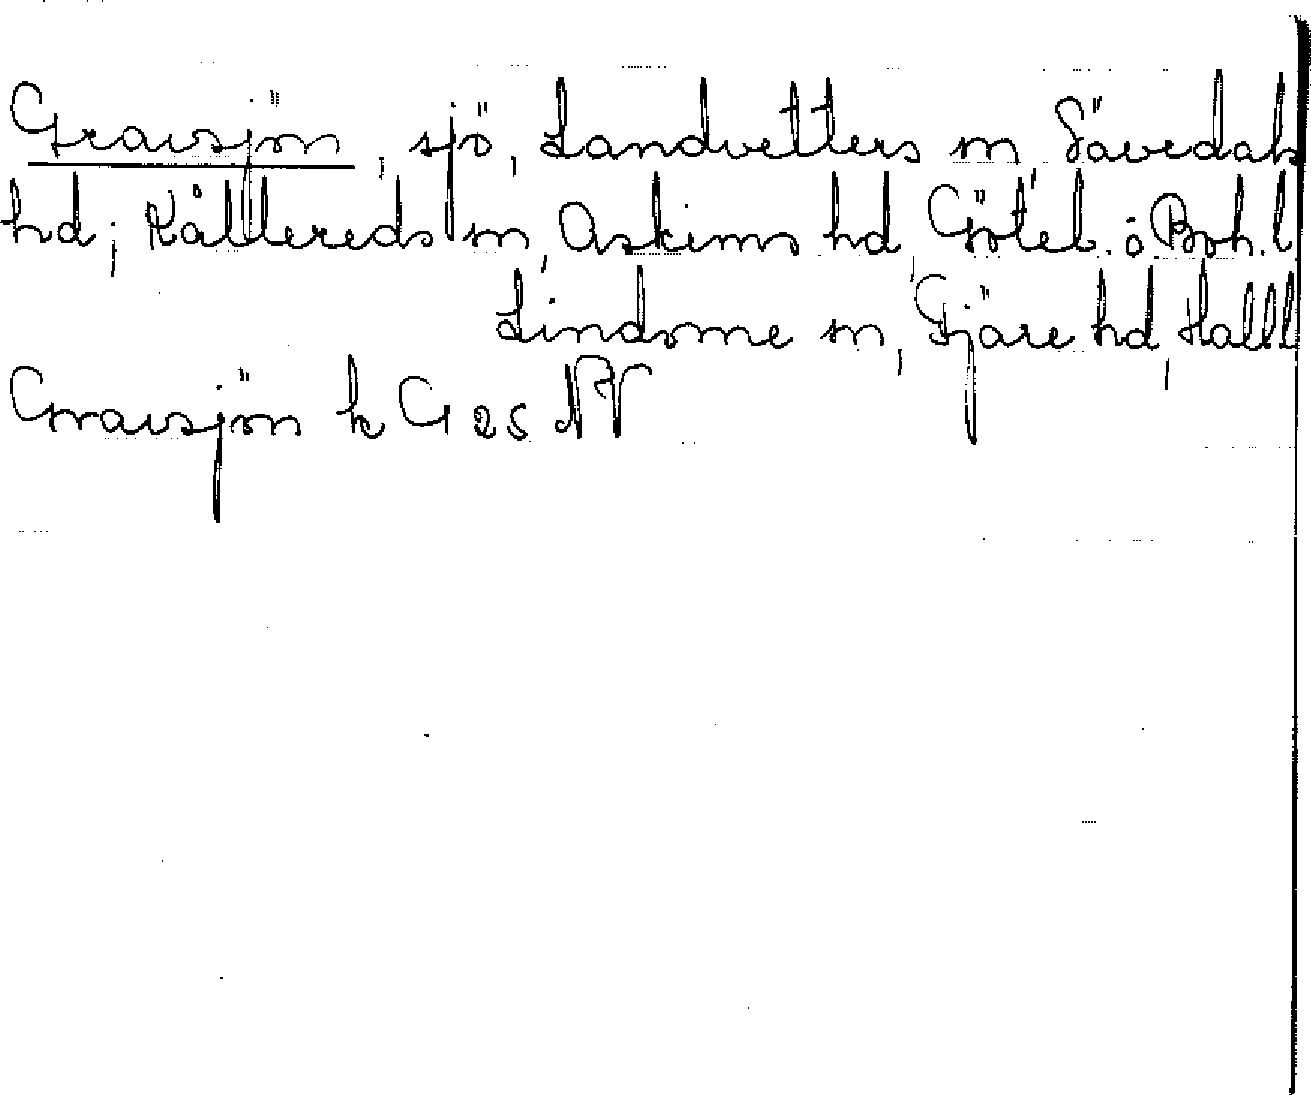 Gravsjön, sjö, Landvetters sn, Sävedals
hd; Kållereds sn, Askims hd, Göteb. o Boh. l
Lindome sn, Fjäre hd, Hall l
Gravsjön k G 25 NV